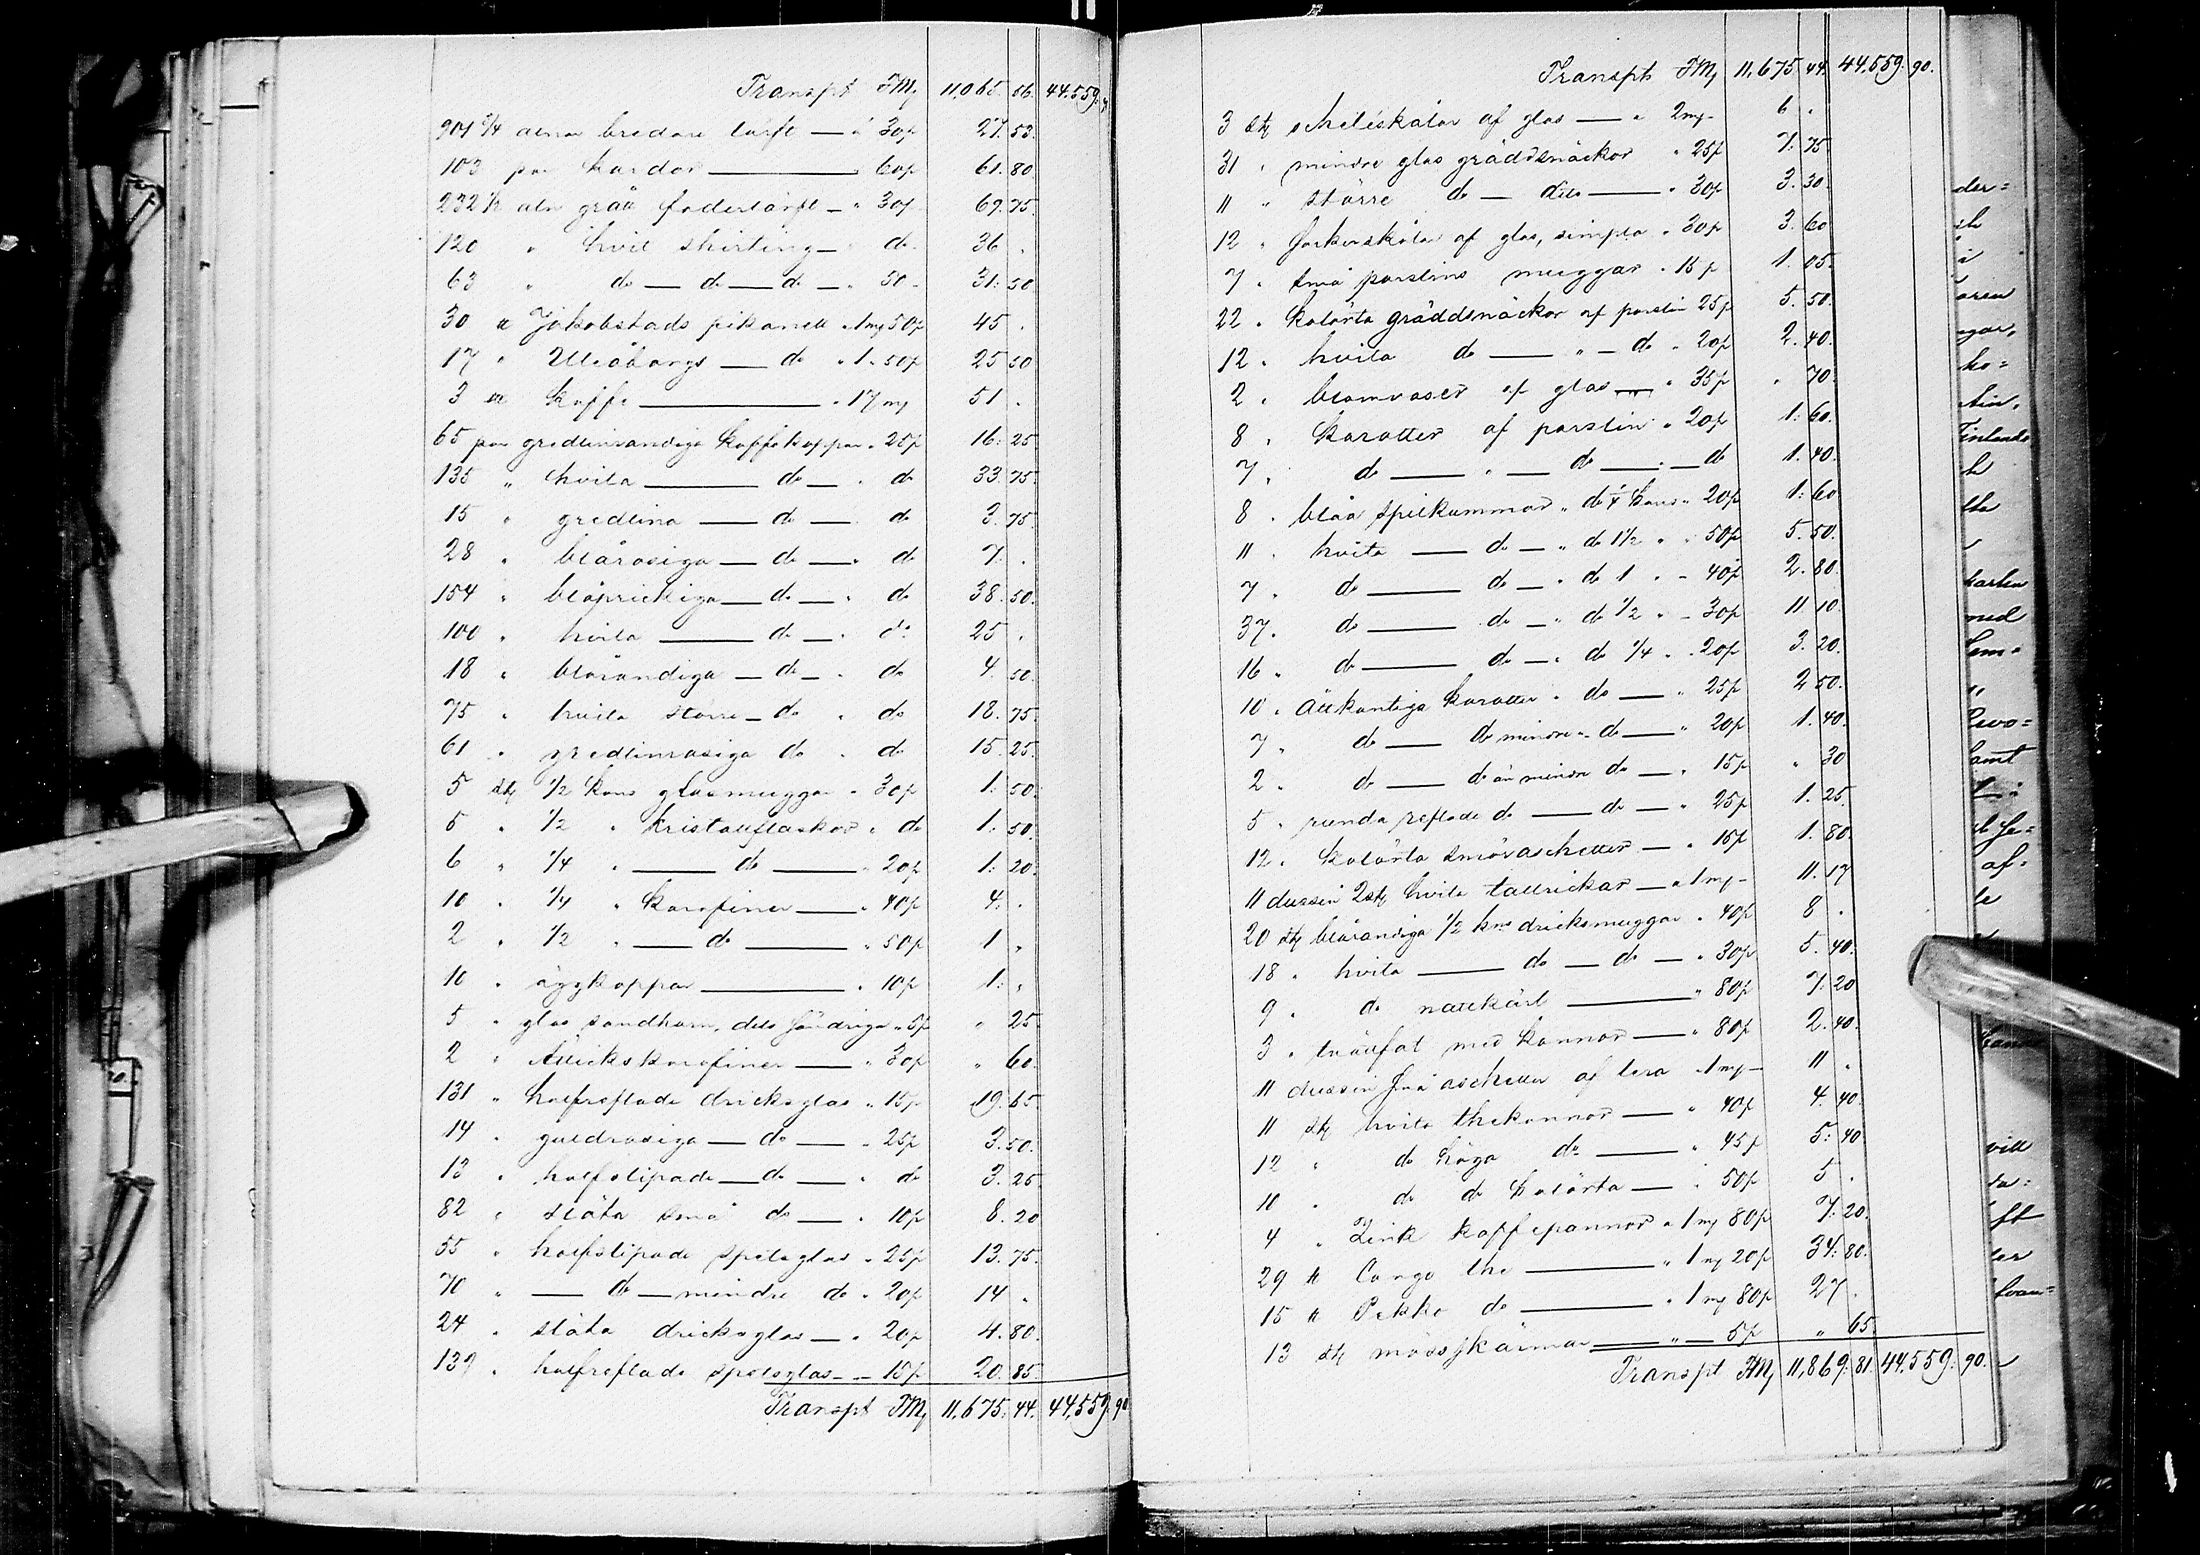 Transpt FMk 11,065. 06. 44,559.
901 3/4 alnar bredare lärft — á 30p 27. 53.
103 par kardor — " 60p 61. 80
232 1/2 aln gråa foderlärft — " 30p 69. 75.
120 " hvit shirting — do 36 .
63 " do — do — do — " 50 31: 50
30 ℔ Jakobstads pikanell " 1mk 50p 45 .
17 " Uleåborgs — do " 1 " 50p 25 50
3 ℔ kaffe — " 17mk 51 .
65 par gredelinrandiga kaffekoppar " 25p 16: 25
135 " hvita — do — " do 33. 75.
15 " gredlina — do — do 3. 75.
28 " blårosiga — do — " do 7. .
154 " blåprickiga — do — " do 38. 50.
100 " hvita — do — " do 25 .
18 " blårandiga — do — " do 4. 50.
75 " hvita större — do " do 18. 75.
61 " gredlinrosiga do " do 15. 25.
5 stk 1/2 kans glasmuggar " 30p 1. 50.
5 " 1/2 " kristallflaskor " do 1. 50.
6 " 1/4 " — do — " 20p 1: 20.
10 " 1/4 " karafiner — " 40p 4. .
2 " 1/2 " — do — " 50p 1 "
10 " äggkoppar — " 10p 1: "
5 " glas sandhorn, dels " 5p " 25.
2 " karafiner — " 30p " 60.
131 " halfreflade dricksglas " 15p 19. 65.
14 " guldrosiga — do — " 25p 3. 50.
13 " halfslipade — do — " do 3. 25.
82 " släta små do — " 10p 8. 20
55 " halfslipade spetsglas " 25p 13. 75.
70 " — do — mindre do " 20p 14 .
24 " släta dricksglas — " 20p 4. 80.
139 " halfreflade spetsglas — 15p 20. 85.
Transpt FMk 11,675. 44. 44,559. 90
Transpt FMk 11,675 44. 44,559. 90.
3 stk af glas — " 2mk 6 .
31 " mindre glas gräddsnäckor " 25p 7. 75
11 " större do — dito — " 30p 3. 30.
12 " sockerskålar af glas, simpla " 30p 3. 60
7 " små porslins muggar " 15p 1. 05.
22 " kolörta gräddsnäckor af porslin 25p 5. 50.
12 " hvita do — " — do " 20p 2. 40.
2 " blomvaser af glas — " 35p " 70.
8 " karotter af porslin " 20p 1. 60.
7 " do — " — do — " — do 1. 40.
8 " blåa spilkummar " do 1/4 kans " 20p 1: 60
11 " hvita — do — " do 1 1/2 " " 50p 5. 50.
7 " do — do — " do 1 " — 40p 2. 80.
37 " do — do — " do 1/2 " — 30p 11 10.
16 " do — do — " do 1/4 " " 20p 3. 20.
10 " åttkantiga karotter " do — " 25p 2 50.
7 " do — do mindre " do — " 20p 1. 40.
2 " do — do än mindre do — " 15p " 30
5 " runda reflade do — do — " 25p 1. 25.
12 " kolörta smörassietter — " 15p 1. 80.
11 dussin 2stk hvita tallrickar — á 1mk 11. 17
20 stk blårandiga 1/2 kns dricksmuggar " 40p 8 .
18 " hvita — do — do — " 30p 5. 40.
9 " do nattkärl — " 80p 7. 20
3 " tvättfat med kannor — " 80p 2. 40.
11 dussin små aschetter af lera " 1mk 11 "
11 stk hvita thekannor — " 40p 4. 40.
12 " do höga do — " 45p 5: 40
10 " do do kolörta — " 50p 5 .
4 " Zink kaffepannor " 1mk 80p 7. 20.
29 ℔ Congo the — " 1mk 20p 34: 80.
15 ℔ Pekko do — " 1mk 80p 27 .
13 stk mösskärmar — " — 5p " 65.
Transpt FMk 11,869. 81. 44,559. 90.